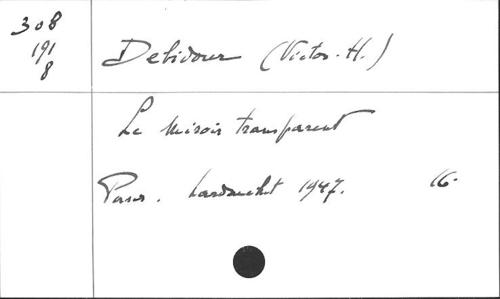 308
191
8
Debidour (Victor-H.)
Le Miroir transparent
Paris. Lardanchet 1947. 16.